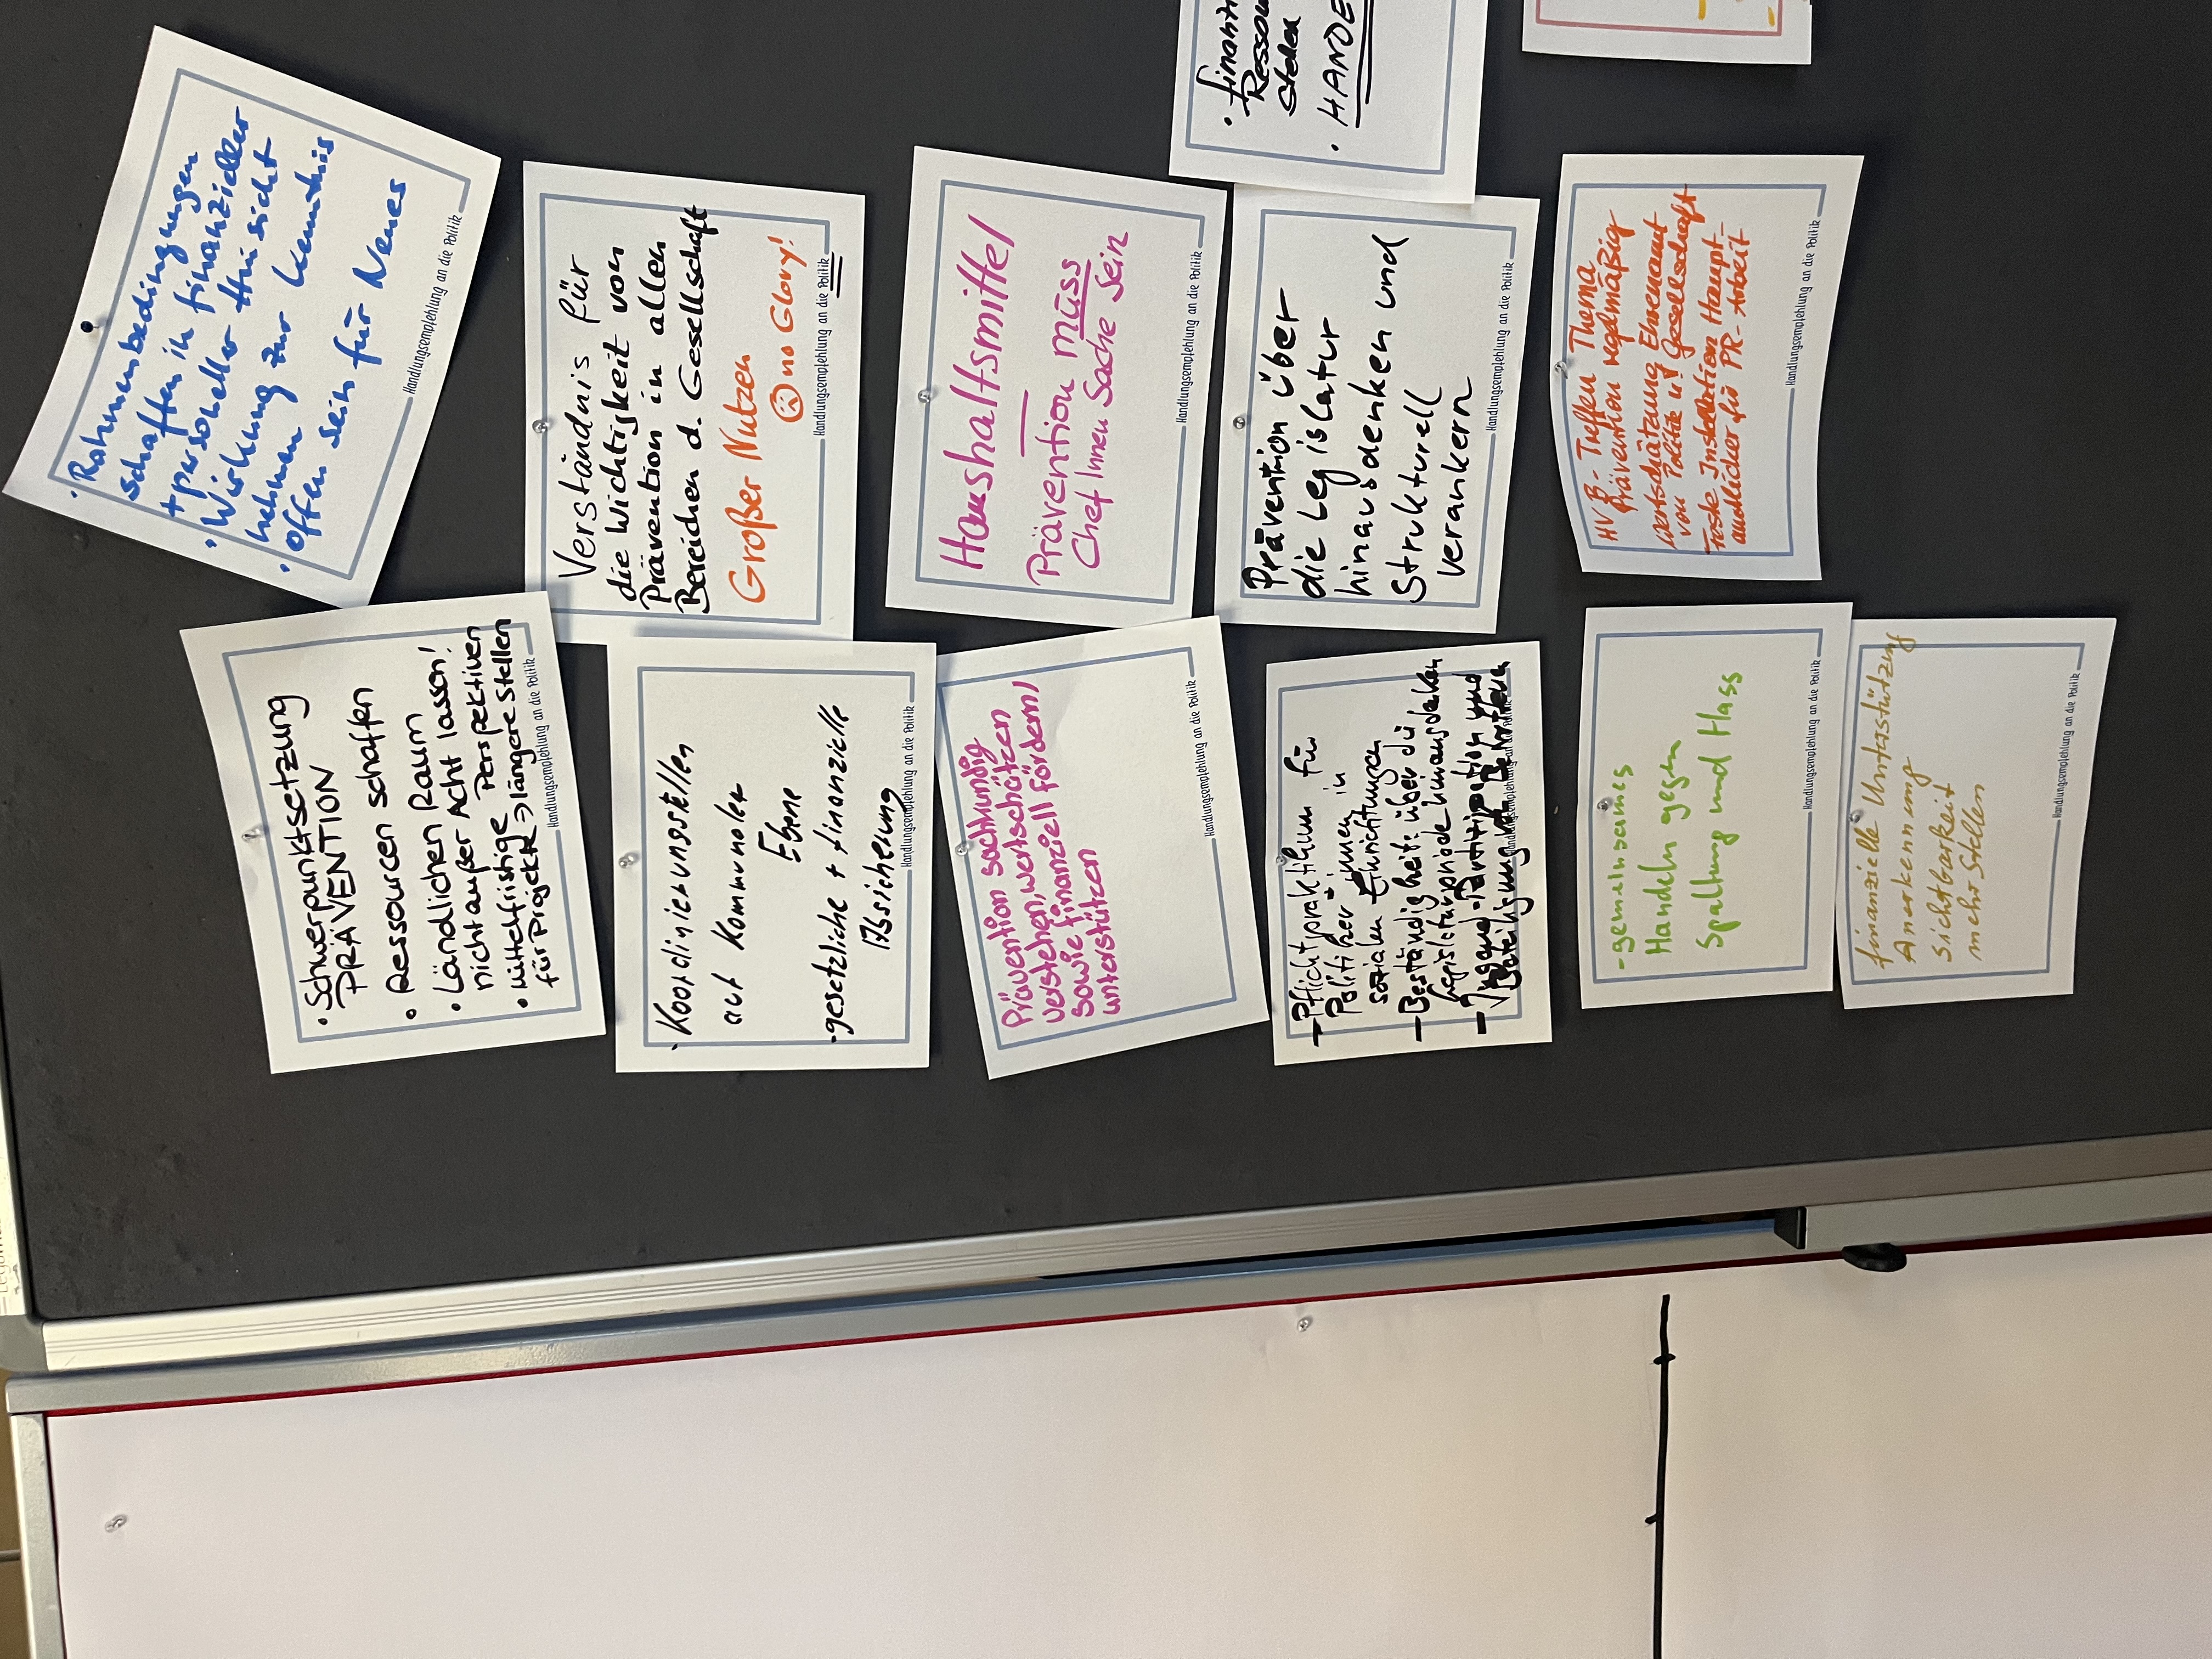 • Schwerpunktsetzung
PRÄVENTION
• Ressourcen schaffen
• Ländlichen Raum
nicht außer Acht lassen!
• mittelfristige Perspektiven
für Projekte → längere Stellen
Handlungsempfehlung an die Politik
• Rahmenbedingungen
schaffen in finanzieller
+ personeller Hinsicht
• Wirkung zur Kenntnis
nehmen
• offen sein für Neues
Handlungsempfehlung an die Politik
• Koordinierungsstellen
auf kommunaler
Ebene
• gesetzliche + finanzielle
Absicherung
Handlungsempfehlung an die Politik
Verständnis für
die Wichtigkeit von
Prävention in allen
Bereichen d. Gesellschaft
Großer Nutzen
☹ no Glory!
Handlungsempfehlung an die Politik
Prävention sachkundig
verstehen, wertschätzen
sowie finanziell fördern/
unterstützen
Handlungsempfehlung an die Politik
Haushaltsmittel
Prävention muss
Chef Innen Sache sein
Handlungsempfehlung an die Politik
– Pflichtpraktikum für
Politiker*innen in
sozialen Einrichtungen
– Beständigkeit: über die
Legislaturperiode hinausdenken
– Jugend-Partizipation und
Prävention über
die Legislatur
hinausdenken und
strukturell
verankern
Handlungsempfehlung an die Politik
• finan
Ressou
stellen
• HANDE
- gemeinsames
Handeln gegen
Spaltung und Hass
Handlungsempfehlung an die Politik
HVB - Treffen Thema
Prävention regelmäßig
Wertschätzung Ehrenamt
von Politik u. Gesellschaft
Feste Installation Haupt-
amtlicher für PR-Arbeit
Handlungsempfehlung an die Politik
finanzielle Unterstützung
Anerkennung
Sichtbarkeit
mehr Stellen
Handlungsempfehlung an die Politik